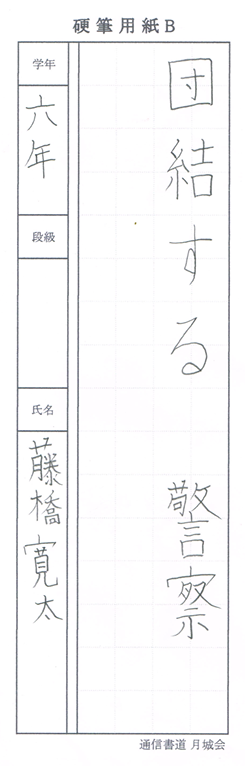 硬筆用紙B
団結する 警察
学年
六年
段級
氏名
藤橋寛太
通信書道 月城会